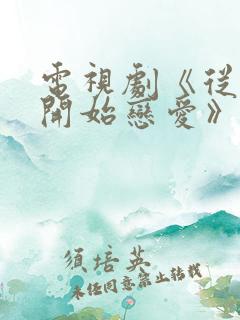 電視劇《從
開始戀愛》
須培英
未經同意禁止轉載